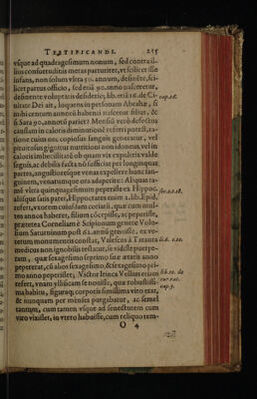 TESTIFICANDI. 215
vsque ad quadragesimum nonum, sed contra il-
lius consuetudinis metas parturiret, vt scilicet ille
infans, non solum vltra 50. annum, desineret, sci-
licet partus officio, sed etiā 90. anno nasceretur,
desinente voluptatis desiderio, lib. etiā 16. de Ci- cap. 28.
uitate Dei ait, loquens in personam Abrahæ, si
mihi centum annorū habenti nascetur filius, &
si Sara 90. annorū pariet? Mensiū verò defectus
causam in caloris diminutionē referri potest, ra-
tione cuius aut copiosus sanguis generatur, vel
pituitosus gignitur nutritioni non idoneus, vel in
caloris imbecillitatē ob quam vix expulsio valde
segnis, ac debilis facta nō sufficiat per longinquas
partes, angustioresque venas expellere hunc san-
guinem, venarumque ora adaperire: Aliquas ta-
mē vltra quinquagesimum peperisse ex Hippoc.
aliisque satis patet, Hippocrates enim 2. lib. Epid.
refert, vxorem cuiusdam coriarij, quæ iam mul-
tos annos haberet, filium cōcepisse, ac peperisse,
præterea Corneliam è Scipionum genere Volu-
sium Saturninum post 62. annū genuisse, ex ve-
terum monumentis constat, Valescus à Taranta lib. 6. c. 12.
medicus non ignobilis testatur, se vidisse puerpe-
ram, quæ sexagesimo septimo suæ ætatis anno
pepererat, cū alios sexagesimo, & sexagesimo pri-
mo anno peperisset, Victor
refert, venam
ma habitu, figuraq; corporis simillima viro erat,
& nunquam per menses purgabatur, ac semel
tantum, cum tamen vsque ad senectutem cum
viro vixisset, in vtero habuisse, cum reliquo tem-
O 4